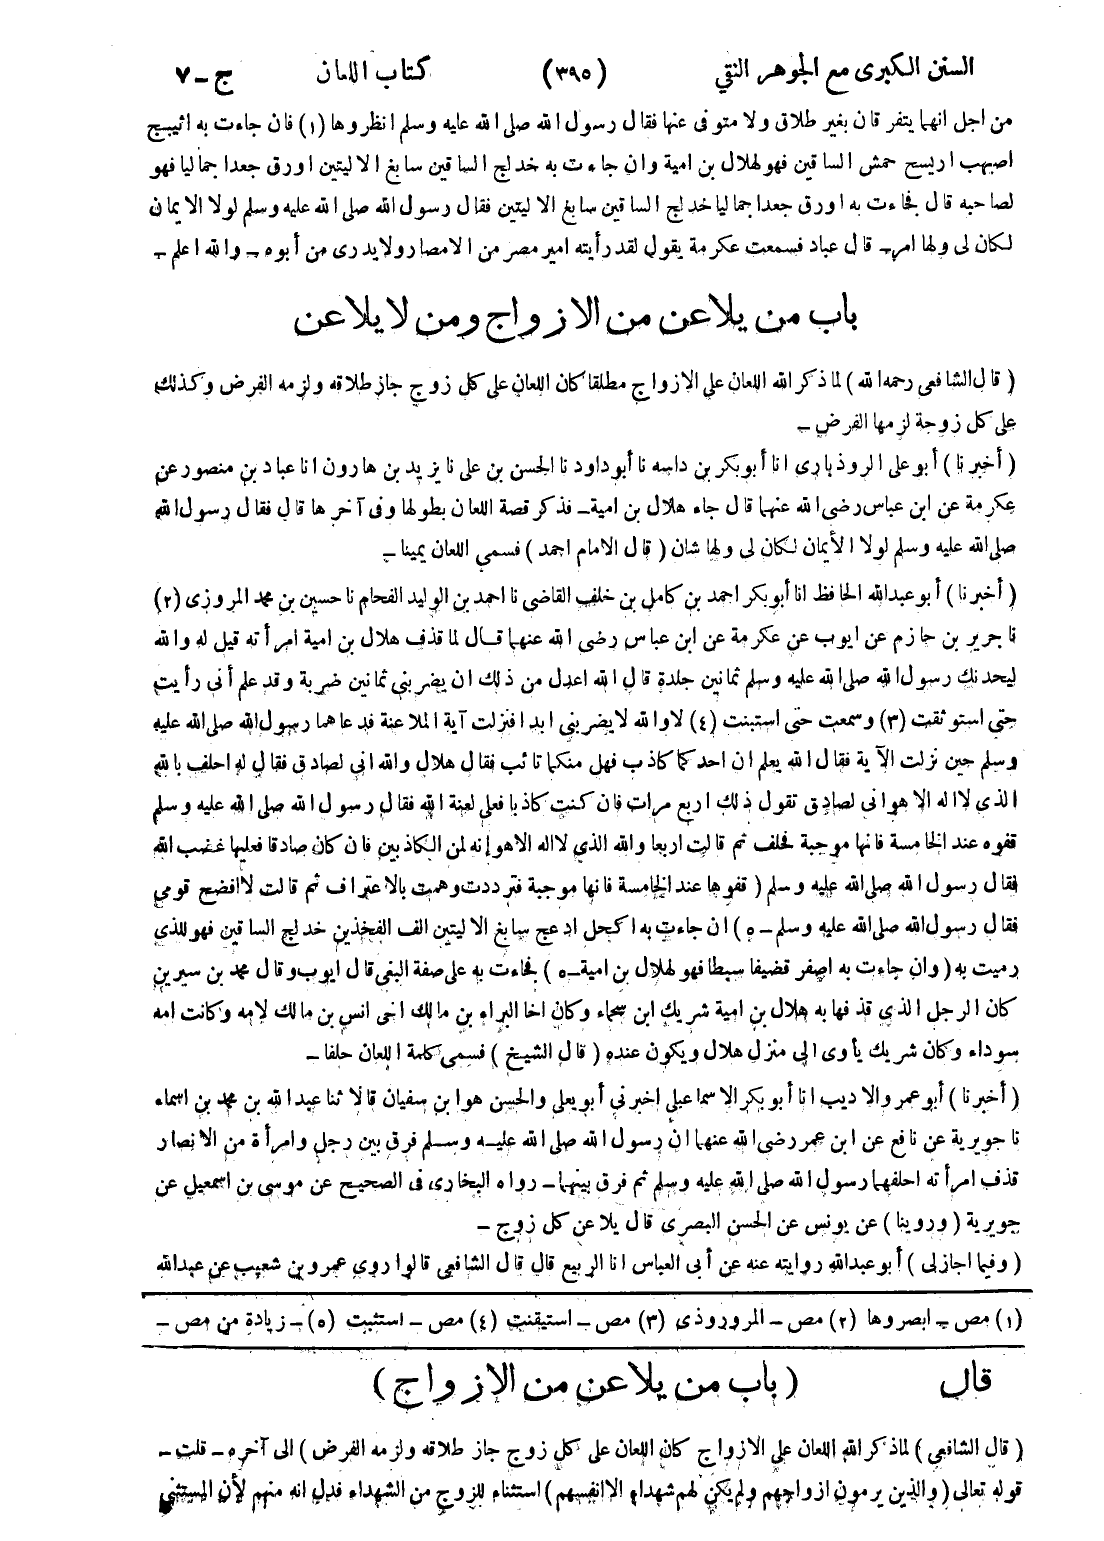 السنن الكبرى مع الجوهر النقي (٣٩٥) كتاب اللعان ج-٧
من اجل انهما يتفرقان بغير طلاق ولا متوفى عنها فقال رسول الله صلى الله عليه وسلم انظروها (١) فان جاءت به اثيبج
اصيهب اريسح حمش الساقين فهو لهلال بن امية وان جاءت به خدلج الساقين سابغ الاليتين اورق جعدا جماليا فهو
لصاحبه قال فجاءت به اورق جعدا جماليا خدلج الساقين سابغ الاليتين فقال رسول الله صلى الله عليه وسلم لولا الايمان
لكان لى ولها امر- قال عباد فسمعت عكرمة يقول لقد رأيته امير مصر من الامصار ولا يدرى من أبوه- والله اعلم-
باب من يلاعن من الازواج ومن لا يلاعن
( قال الشافعى رحمه الله ) لما ذكر الله اللعان على الازواج مطلقا كان اللعان على كل زوج جاز طلاقه ولزمه الفرض وكذلك
على كل زوجة لزمها الفرض-
( أخبرنا ) أبو على الروذبارى انا أبو بكر بن داسه نا أبو داود نا الحسن بن على نا يزيد بن هارون انا عباد بن منصور عن
عكرمة عن ابن عباس رضى الله عنهما قال جاء هلال بن امية- فذكر قصة اللعان بطولها وفى آخرها قال فقال رسول الله
صلى الله عليه وسلم لولا الأيمان لكان لى ولها شان ( قال الامام احمد ) فسمى اللعان يمينا-
( أخبرنا ) أبو عبدالله الحافظ انا أبو بكر احمد بن كامل بن خلف القاضى نا احمد بن الوليد الفحام نا حسين بن محمد المروزى (٢)
نا جرير بن حازم عن ايوب عن عكرمة عن ابن عباس رضى الله عنهما قال لما قذف هلال بن امية امرأته قيل له والله
ليحدنك رسول الله صلى الله عليه وسلم ثمانين جلدة قال الله اعدل من ذلك ان يضربنى ثمانين ضربة وقد علم أنى رأيت
حتى استوثقت (٣) وسمعت حتى استبنت (٤) لا والله لا يضربنى ابدا فنزلت آية الملاعنة فدعاهما رسول الله صلى الله عليه
وسلم حين نزلت الآية فقال الله يعلم ان احدكما كاذب فهل منكما تائب فقال هلال والله انى لصادق فقال له احلف بالله
الذى لا اله الا هو انى لصادق تقول ذلك اربع مرات فان كنت كاذبا فعلى لعنة الله فقال رسول الله صلى الله عليه وسلم
قفوه عند الخامسة فانها موجبة فحلف ثم قالت اربعا والله الذي لا اله الا هو إنه لمن الكاذبين فان كان صادقا فعليها غضب الله
فقال رسول الله صلى الله عليه وسلم ( قفوها عند الخامسة فانها موجبة فترددت وهمت بالاعتراف ثم قالت لا افضح قومي
فقال رسول الله صلى الله عليه وسلم- ٥ ) ان جاءت به اكحل ادعج سابغ الاليتين الف الفخذين خدلج الساقين فهو للذى
رميت به ( وان جاءت به اصفر قضيفا سبطا فهو لهلال بن امية-٥ ) فجاءت به على صفة البغى قال ايوب وقال محمد بن سيرين
كان الرجل الذي قذفها به هلال بن امية شريك ابن سحماء وكان اخا البراء بن مالك اخى انس بن مالك لامه وكانت امه
سوداء وكان شريك يأوى الى منزل هلال ويكون عنده ( قال الشيخ ) فسمى كلمة اللعان حلفا-
( أخبرنا ) أبو عمرو الاديب انا أبو بكر الاسماعيلى اخبرنى أبو يعلى والحسن هو ابن سفيان قالا ثنا عبد الله بن محمد بن اسماء
نا جويرية عن نافع عن ابن عمر رضى الله عنهما ان رسول الله صلى الله عليه وسلم فرق بين رجل وامرأة من الانصار
قذف امرأته احلفهما رسول الله صلى الله عليه وسلم ثم فرق بينهما- رواه البخارى فى الصحيح عن موسى بن اسمعيل عن
جويرية ( وروينا ) عن يونس عن الحسن البصرى قال يلاعن كل زوج-
( وفيما اجازلى ) أبو عبدالله روايته عنه عن أبى العباس انا الربيع قال قال الشافعى قالوا روى عمرو بن شعيب عن عبدالله
(١) مص- ابصروها (٢) مص- المروروذى (٣) مص- استيقنت (٤) مص- استثبت (٥)- زيادة من مص-
قال ( باب من يلاعن من الازواج )
( قال الشافعى ) لما ذكر الله اللعان على الازواج كان اللعان على كل زوج جاز طلاقه ولزمه الفرض ) الى آخره- قلت-
قوله تعالى ( والذين يرمون ازواجهم ولم يكن لهم شهداء الا انفسهم ) استثناء للزوج من الشهداء فدل انه منهم لأن المستثنى